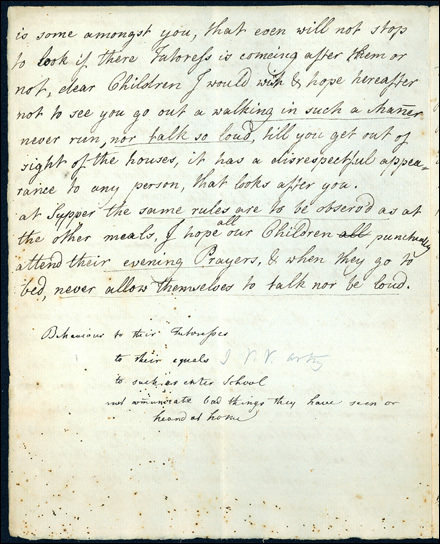 is some amongst you, that even will not stop
to look if there Tutoress is comeing after them or
not, dear Children I would wish & hope hereafter
not to see you go out a walking in such a Manner
never run, nor talk so loud, till you get out of
sight of the houses, it has a disrespectful appea-
rance to any person, that looks after you.
at Supper the same rules are to be observ'd as at
the other meals, I hope all our Children all punctually
attend their evening Prayers, & when they go to
bed, never allow themselves to talk nor be loud.
Behaviour to their Tutoresses
to their equals
to such as enter School
not communicate bad things they have seen or
heard at home